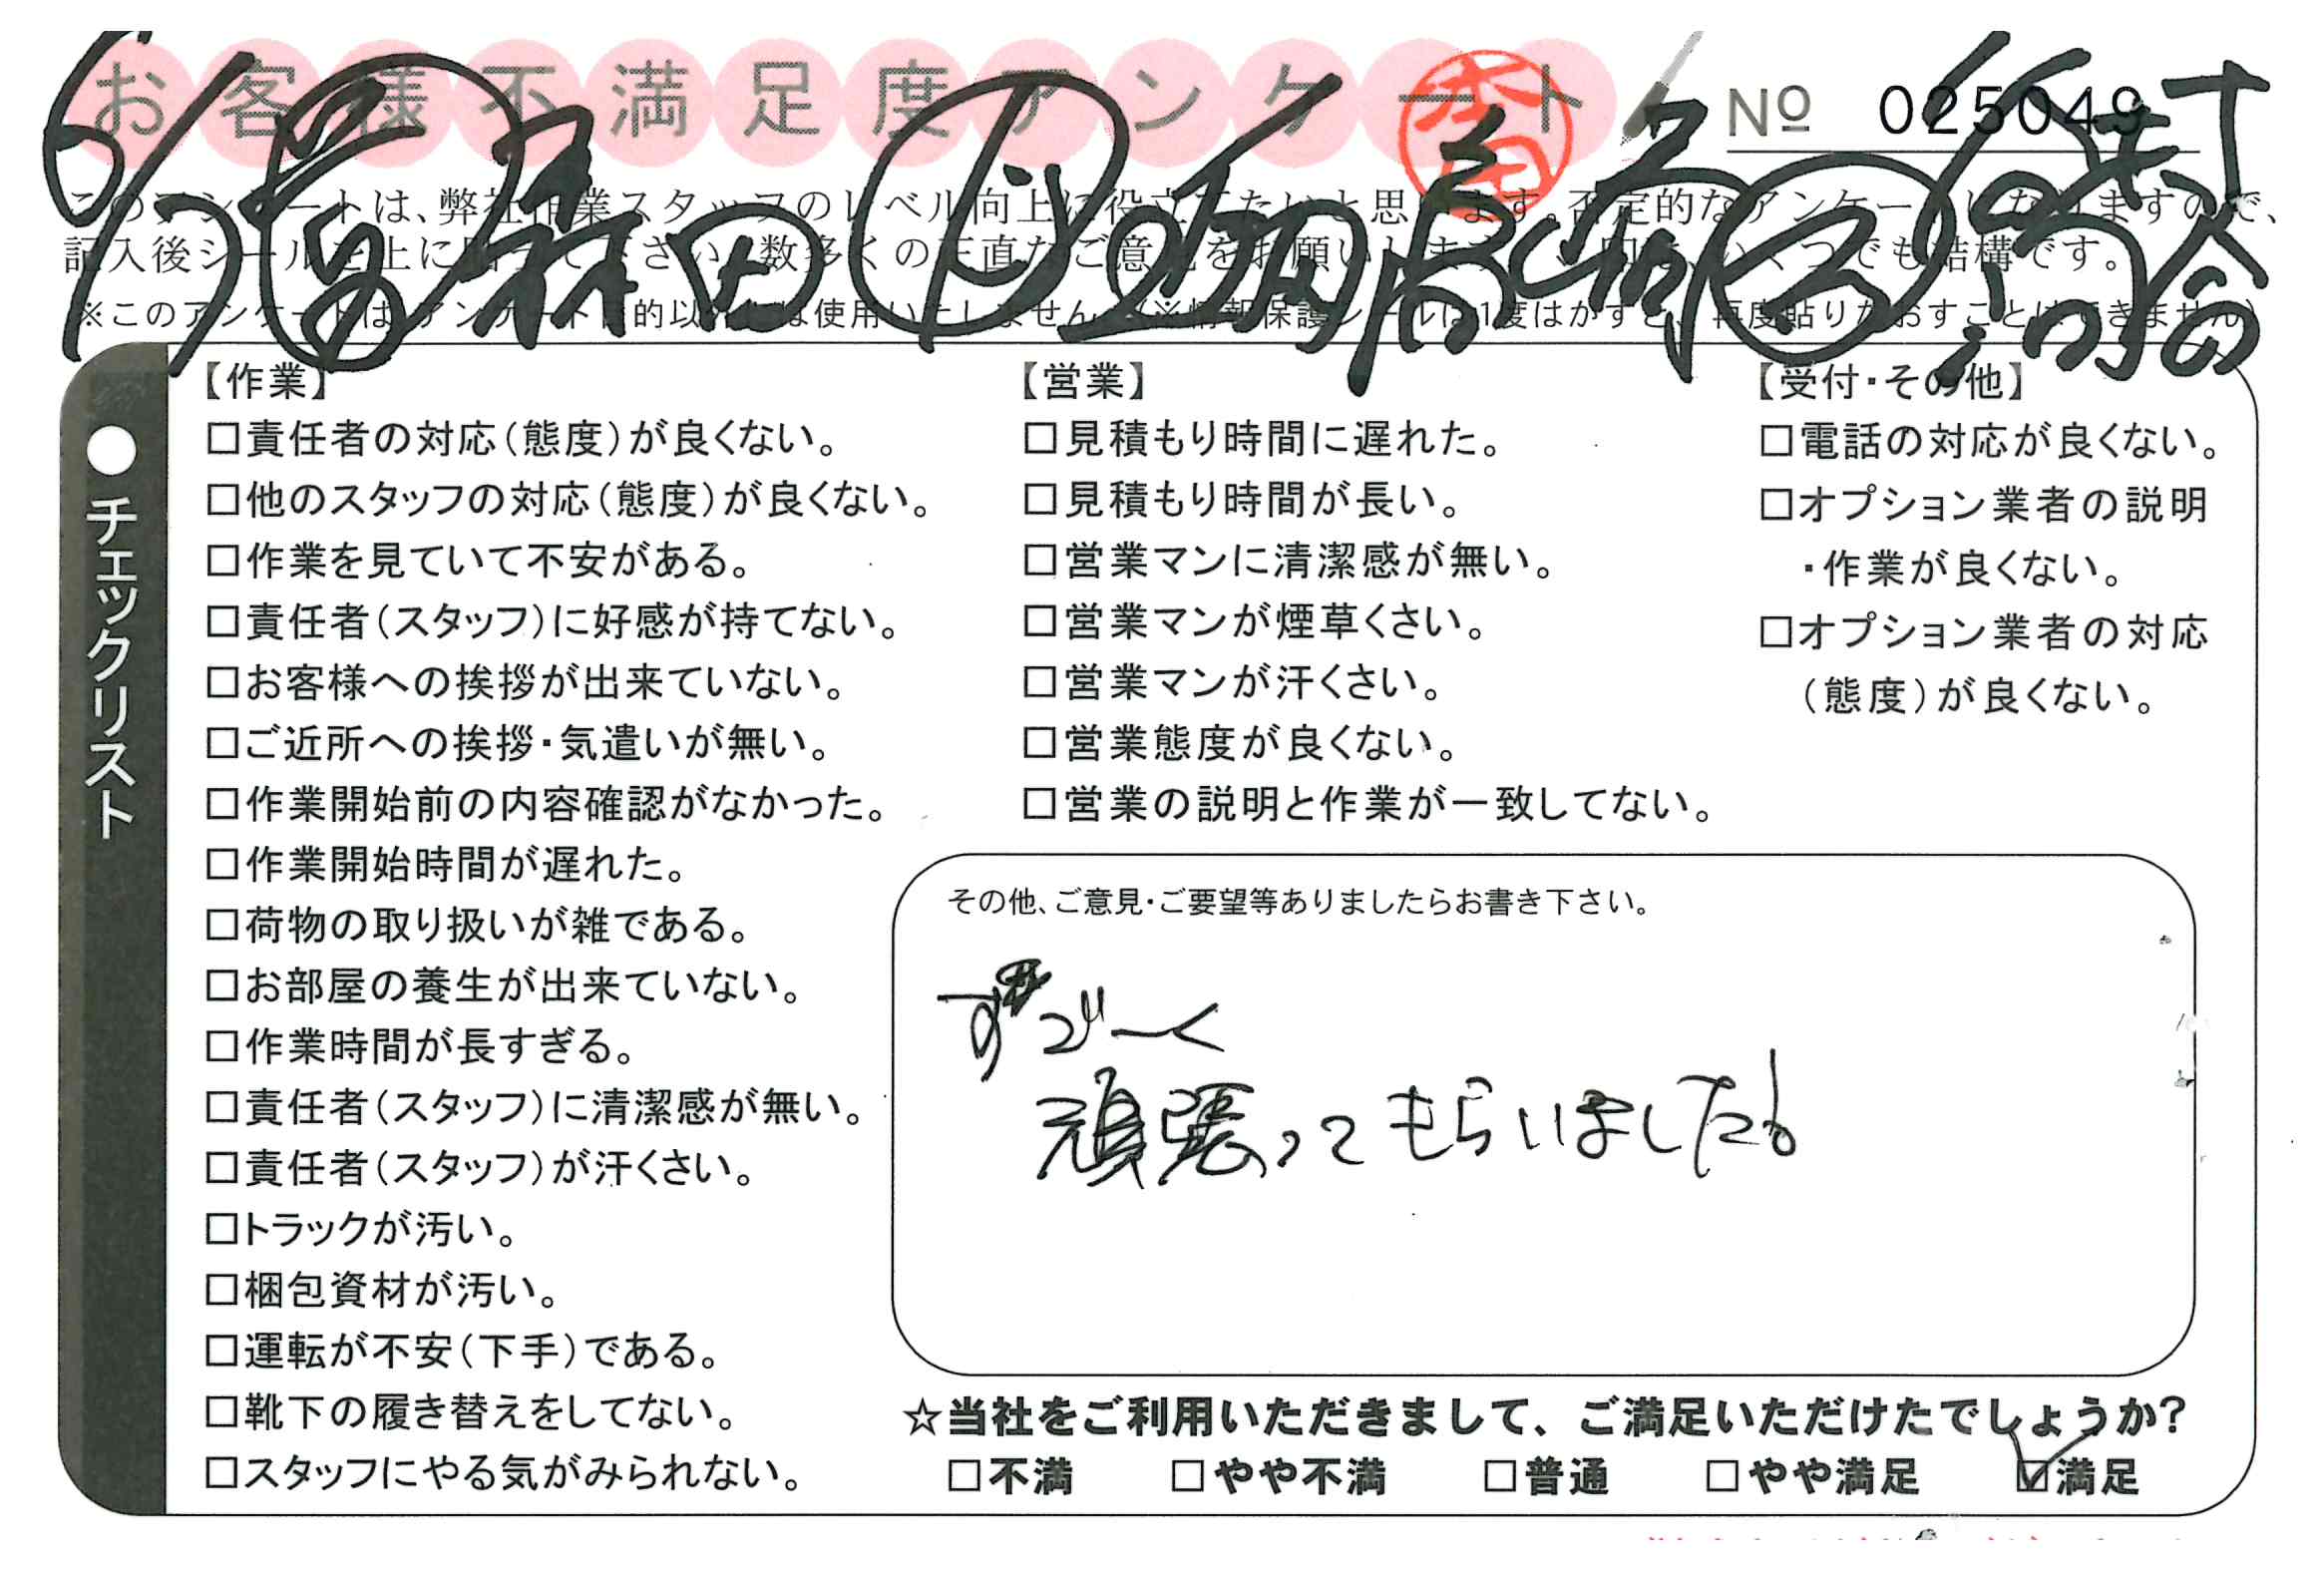 お客様不満足度アンケート
本田
No 025049
このアンケートは、弊社作業スタッフのレベル向上に役立てたいと思います。否定的なアンケートになりますので、
記入後シールを上に貼って下さい。数多くの正直なご意見をお願いします。いくつでも結構です。
※このアンケートはアンケート目的以外には使用いたしません。(※情報保護シールは1度はがすと、再度貼りなおすことはできません)
●チェックリスト
【作業】
□責任者の対応(態度)が良くない。
□他のスタッフの対応(態度)が良くない。
□作業を見ていて不安がある。
□責任者(スタッフ)に好感が持てない。
□お客様への挨拶が出来ていない。
□ご近所への挨拶・気遣いが無い。
□作業開始前の内容確認がなかった。
□作業開始時間が遅れた。
□荷物の取り扱いが雑である。
□お部屋の養生が出来ていない。
□作業時間が長すぎる。
□責任者(スタッフ)に清潔感が無い。
□責任者(スタッフ)が汗くさい。
□トラックが汚い。
□梱包資材が汚い。
□運転が不安(下手)である。
□靴下の履き替えをしてない。
□スタッフにやる気がみられない。
【営業】
□見積もり時間に遅れた。
□見積もり時間が長い。
□営業マンに清潔感が無い。
□営業マンが煙草くさい。
□営業マンが汗くさい。
□営業態度が良くない。
□営業の説明と作業が一致してない。
【受付・その他】
□電話の対応が良くない。
□オプション業者の説明
・作業が良くない。
□オプション業者の対応
(態度)が良くない。
その他、ご意見・ご要望等ありましたらお書き下さい。
すご〜く
頑張ってもらいました!
☆当社をご利用いただきまして、ご満足いただけたでしょうか?
□不満 □やや不満 □普通 □やや満足 ☑満足